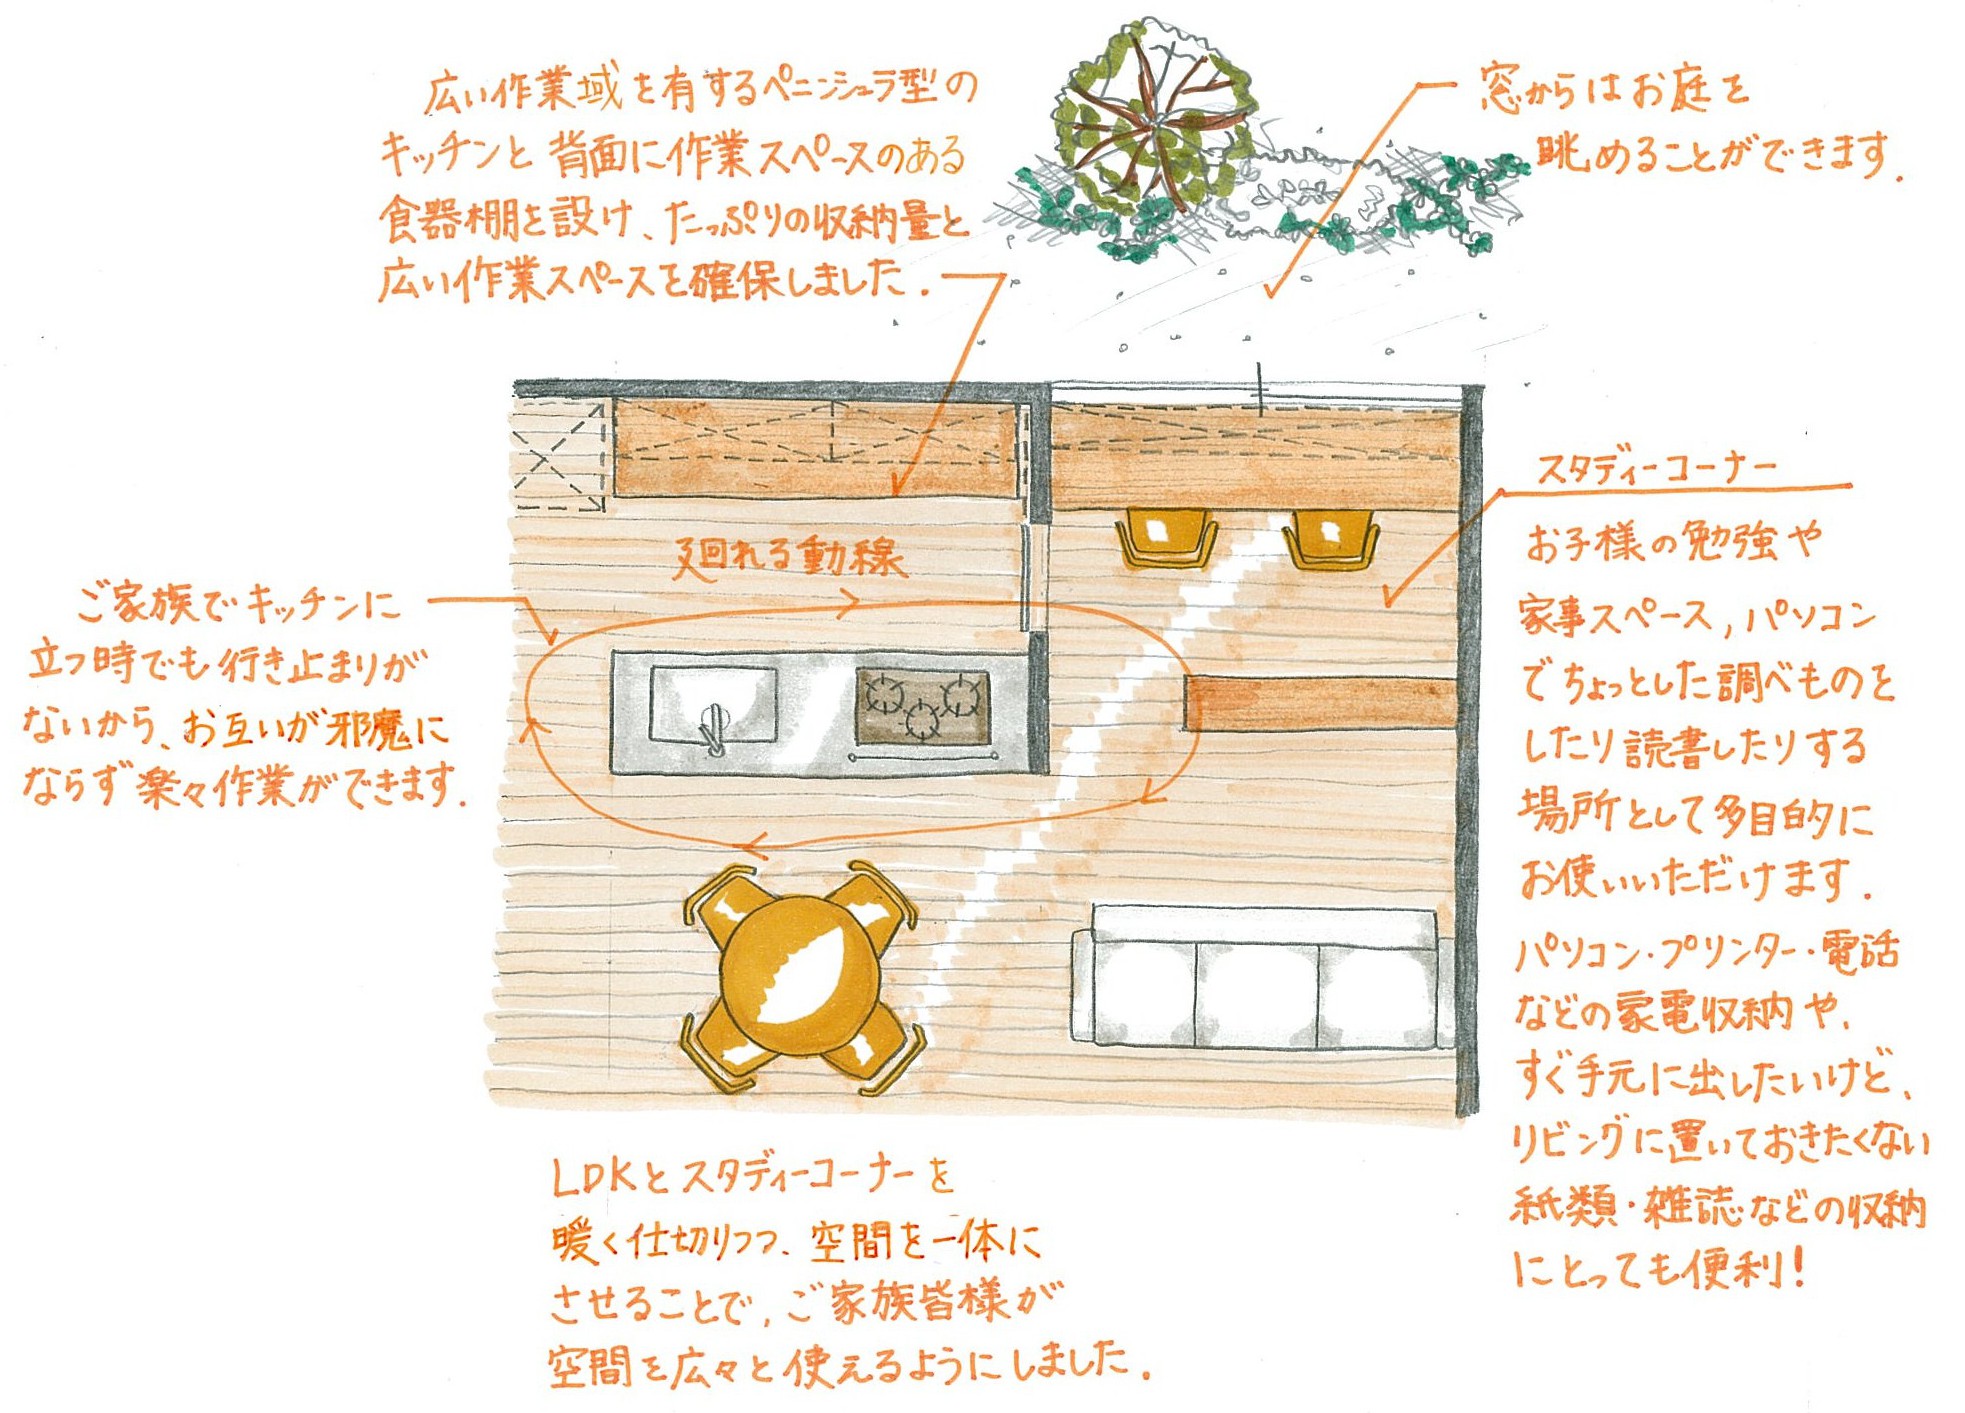 広い作業域を有するペニンシュラ型の
キッチンと背面に作業スペースのある
食器棚を設け、たっぷりの収納量と
広い作業スペースを確保しました.
窓からはお庭を
眺めることができます.
スタディーコーナー
お子様の勉強や
家事スペース,パソコン
でちょっとした調べものを
したり読書したりする
場所として多目的に
お使いいただけます.
パソコン・プリンター・電話
などの家電収納や、
すぐ手元に出したいけど、
リビングに置いておきたくない
紙類・雑誌などの収納
にとっても便利!
廻れる動線
ご家族でキッチンに
立つ時でも行き止まりが
ないから、お互いが邪魔に
ならず楽々作業ができます.
LDKとスタディーコーナーを
暖く仕切りつつ、空間を一体に
させることで,ご家族皆様が
空間を広々と使えるようにしました.